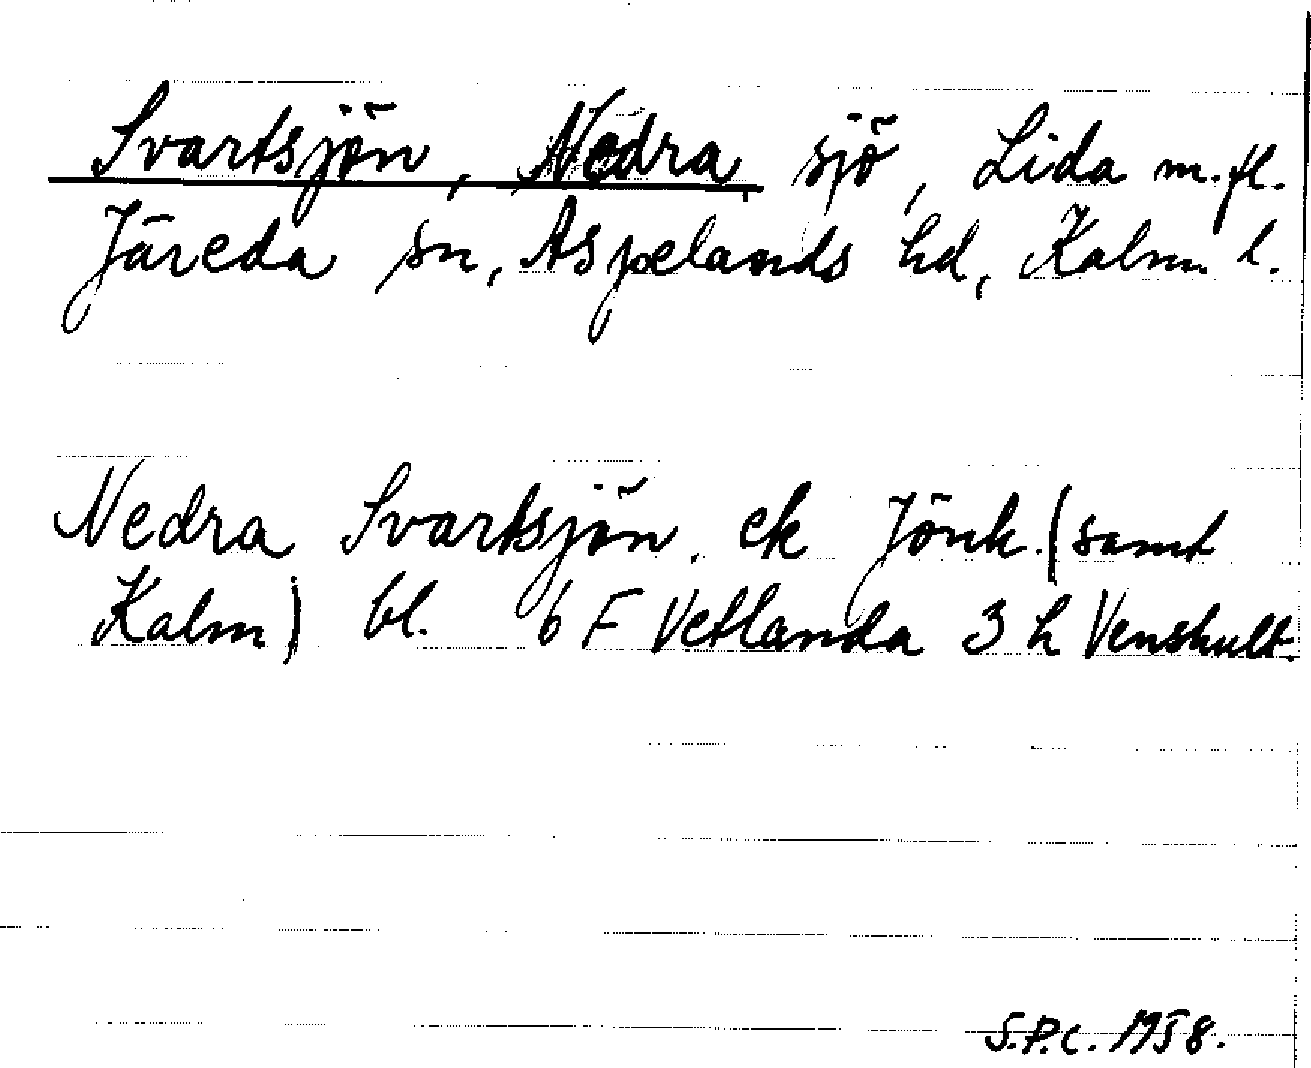 Svartsjön, Nedra, sjö, Lida m.fl.
Järeda sn, Aspelands hd, Kalm. l.
Nedra Svartsjön. ek Jönk. (samt
Kalm) bl. 6 F Vetlanda 3 h Venshult.
S.P.C. 1958.